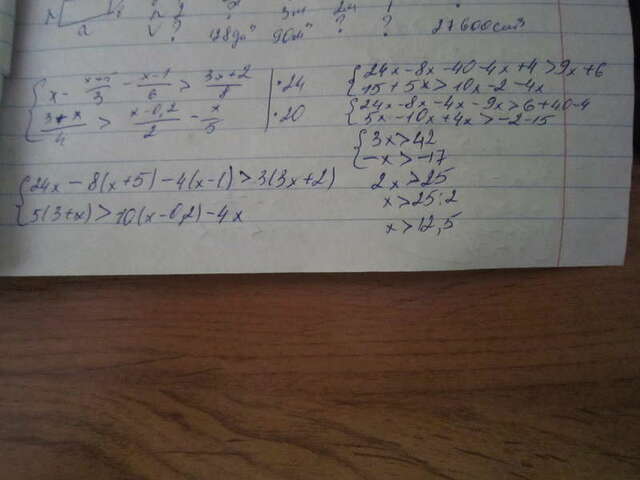 a V ? 128дм³ 90м³ ? ? 27600см³
x - (x+5)/3 - (x-1)/6 > (3x+2)/8 | ·24
(3+x)/4 > (x-0,2)/2 - x/5 | ·20
{24x - 8(x+5) - 4(x-1) > 3(3x+2)
{5(3+x) > 10(x-0,2) - 4x
{24x-8x-40-4x+4>9x+6
{15+5x>10x-2-4x
{24x-8x-4x-9x>6+40-4
{5x-10x+4x>-2-15
{3x>42
{-x>-17
2x>25
x>25:2
x>12,5